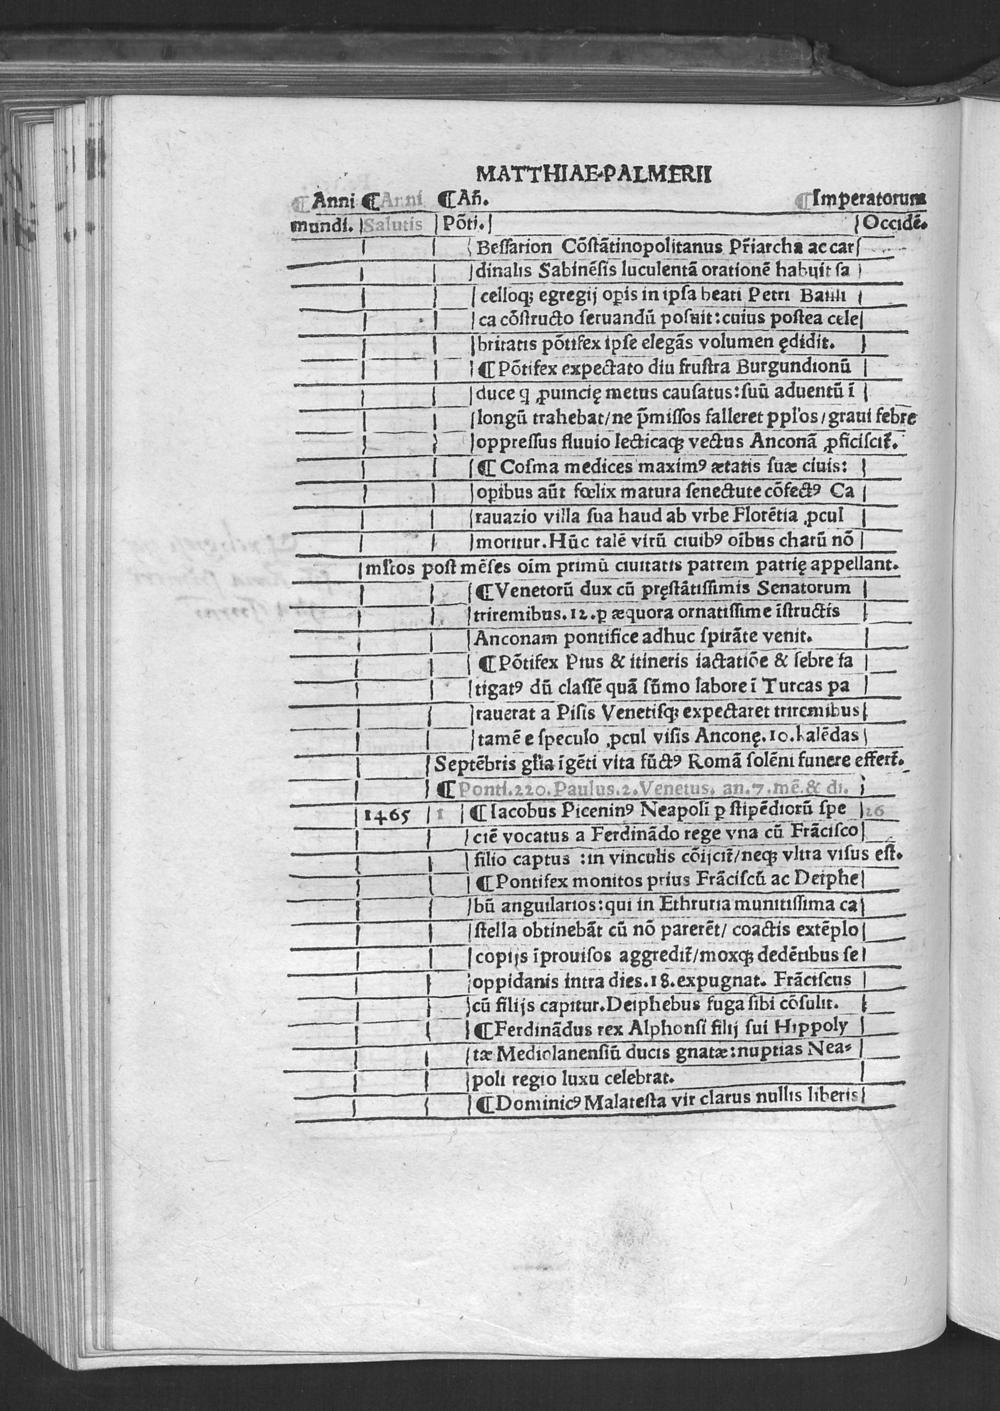 MATTHIAE PALMERII
¶ Anni ¶ Anni ¶ Añ. ¶ Imperatorum
mundi. Salutis Põti. Occidẽ.
Bessarion Cõstãtinopolitanus Pr̃iarcha ac car
dinalis Sabinẽsis luculentã orationẽ habuit sa
celloqꝫ egregij oꝑis in ipsa beati Petri Basili
ca cõstructo seruandũ posuit: cuius postea cele
britatis põtifex ipse elegãs volumen ędidit.
¶ Põtifex expectato diu frustra Burgundionũ
duce ꝙ ꝓuincię metus causatus: suũ aduentũ ĩ
longũ trahebat/ne p̃missos falleret ppl'os/graui febre
oppressus fluuio lecticaqꝫ vectus Anconã ꝓficiscit̃.
¶ Cosma medices maximꝰ ætatis suæ ciuis:
opibus aũt fœlix matura senectute cõfectꝰ Ca
rauazio villa sua haud ab vrbe Florẽtia ꝓcul
moritur. Hũc talẽ virũ ciuibꝰ oĩbus charũ nõ
ml'tos post mẽses oĩm primũ ciuitatis patrem patrię appellant.
¶ Venetorũ dux cũ pręstãtissimis Senatorum
triremibus. 12. ꝑ æquora ornatissime ĩstructis
Anconam pontifice adhuc spirãte venit.
¶ Põtifex Pius & itineris iactatiõe & febre fa
tigatꝰ dũ classẽ quã sũmo labore ĩ Turcas pa
rauerat a Pisis Venetisqꝫ expectaret triremibus
tamẽ e speculo ꝓcul visis Anconę. 10. kalẽdas
Septẽbris gl'ia ĩgẽti vita fũctꝰ Romã solẽni funere effert̃.
¶ Ponti. 220. Paulus. 2. Venetus. an. 7. mẽ. & di.
1465 1 ¶ Iacobus Piceninꝰ Neapoli ꝑ stipẽdiorũ spe 26
ciẽ vocatus a Ferdinãdo rege vna cũ Frãcisco
filio captus : in vinculis cõijcit̃/neqꝫ vltra visus est.
¶ Pontifex monitos prius Frãciscũ ac Deiphe
bũ anguilarios: qui in Ethruria munitissima ca
stella obtinebãt cũ nõ parerẽt/ coactis extẽplo
copijs ĩprouisos aggredit̃/moxqꝫ dedẽtibus se
oppidanis intra dies. 18. expugnat. Frãciscus
cũ filijs capitur. Deiphebus fuga sibi cõsulit.
¶ Ferdinãdus rex Alphonsi filij sui Hippoly
tæ Mediolanensiũ ducis gnatæ: nuptias Nea⸗
poli regio luxu celebrat.
¶ Dominicꝰ Malatesta vir clarus nullis liberis